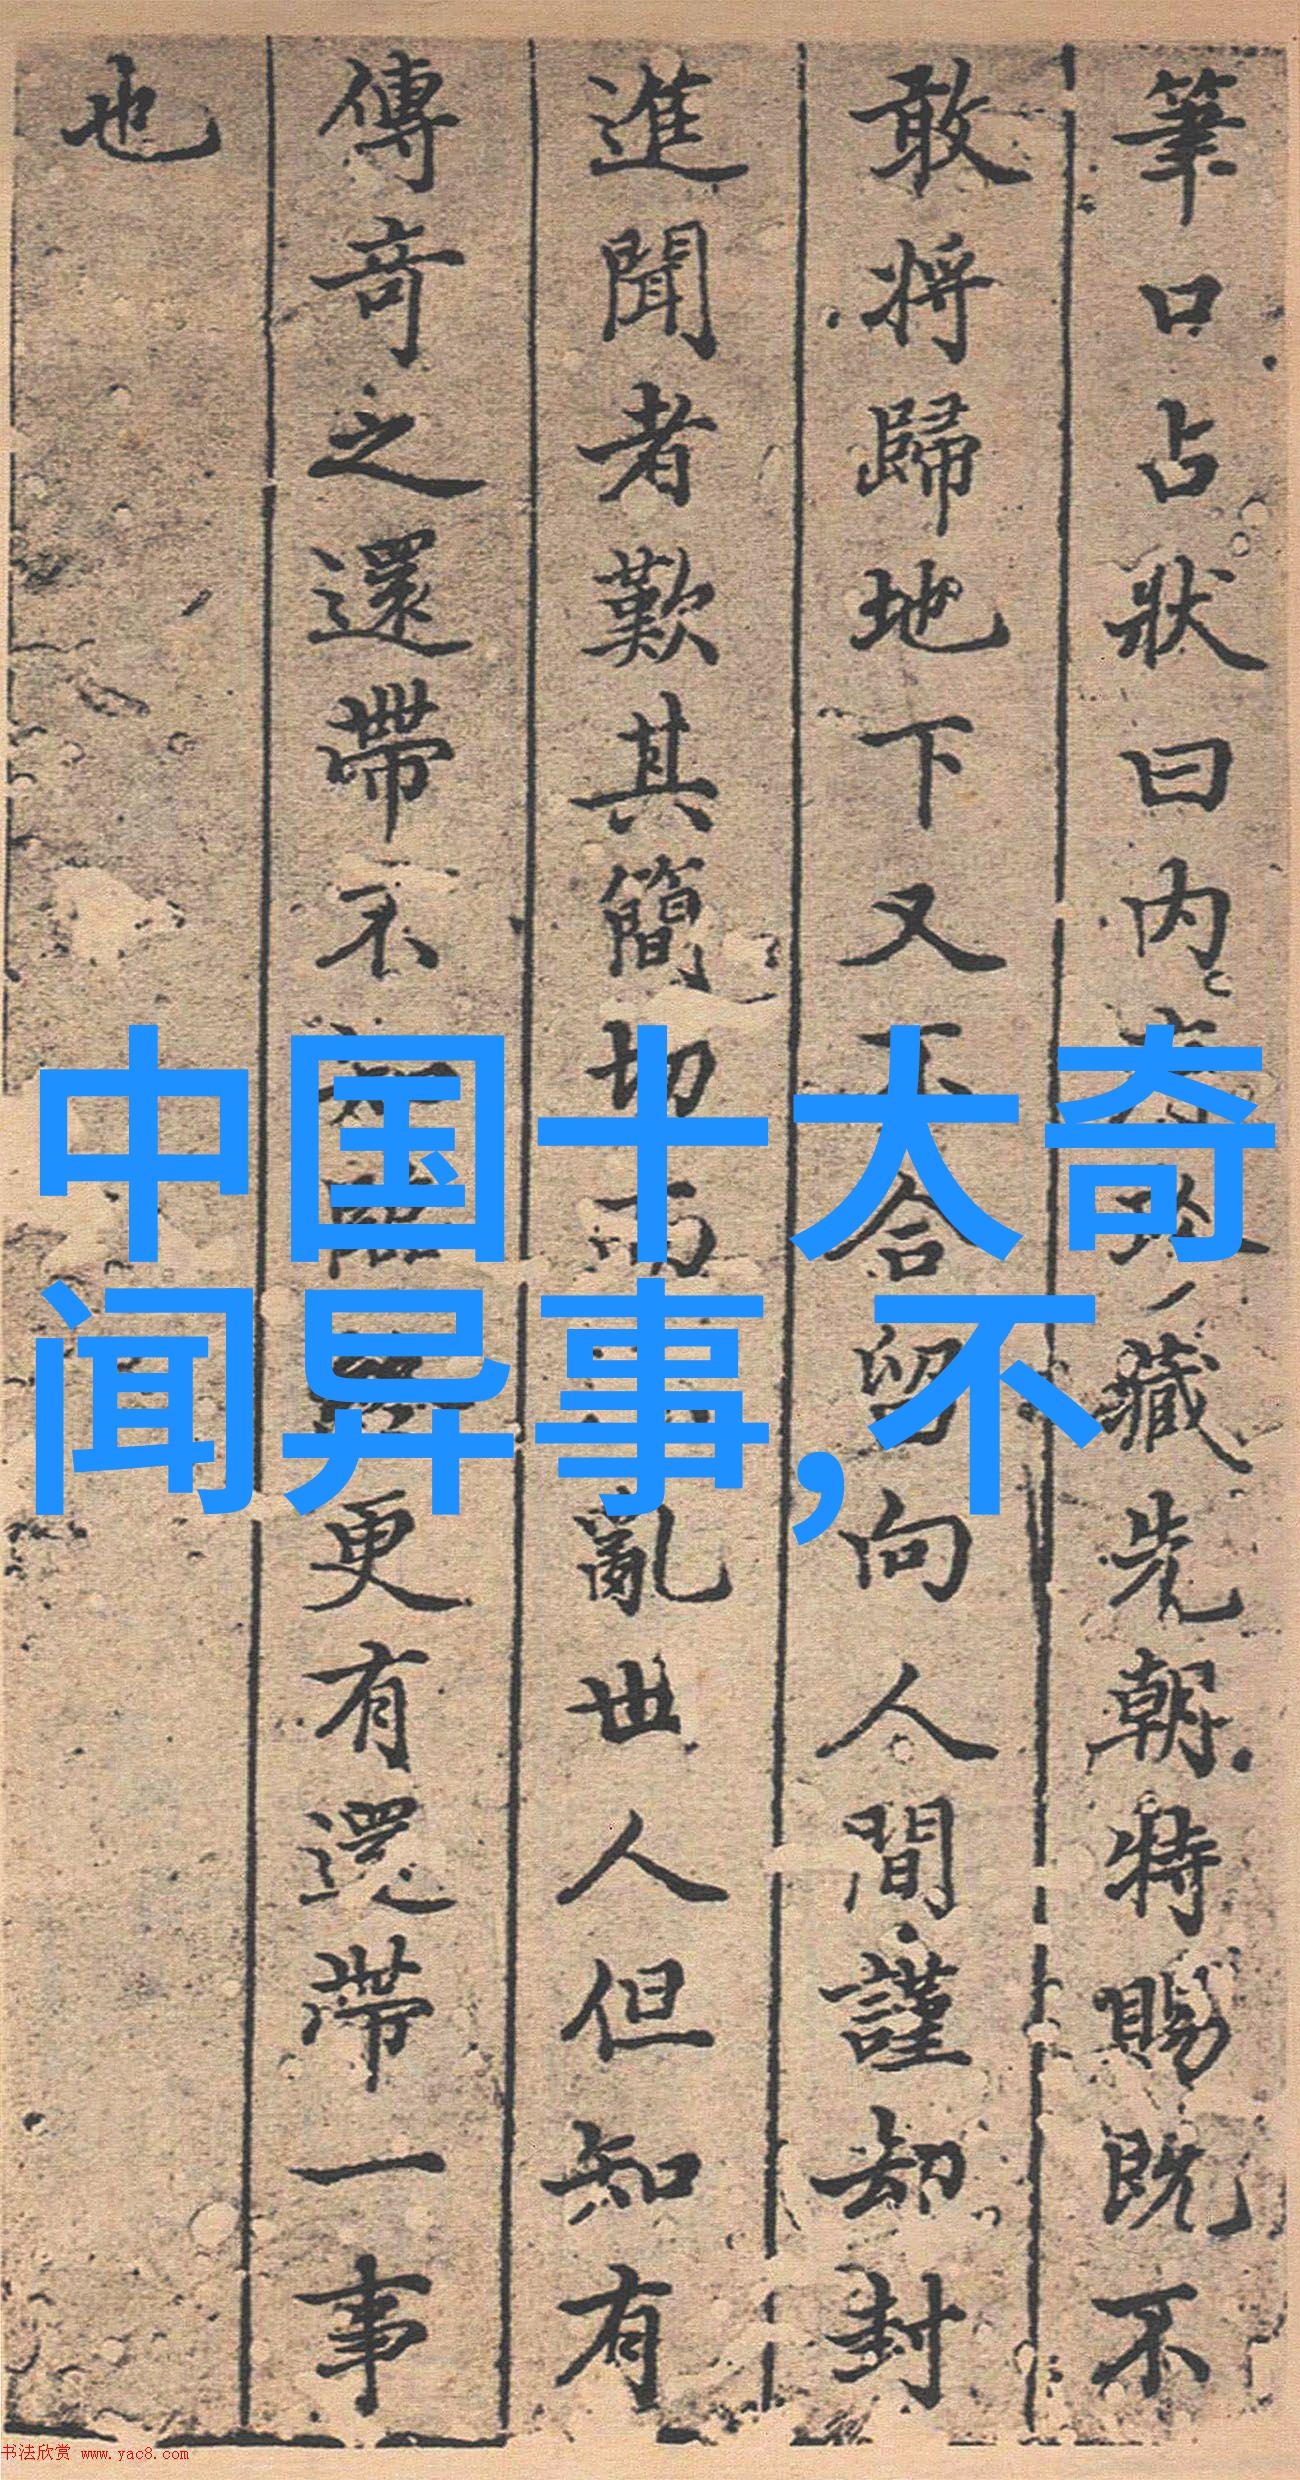 筆口占狀曰内珍藏先朝特賜既不
敢將歸地下又不合留向人間謹却封
進聞者歎其簡切而亂世人但知有
傳奇之還帶不知更有還帶一事
也
中国十大奇
闻异事,不
书法欣赏 www.yac8.com